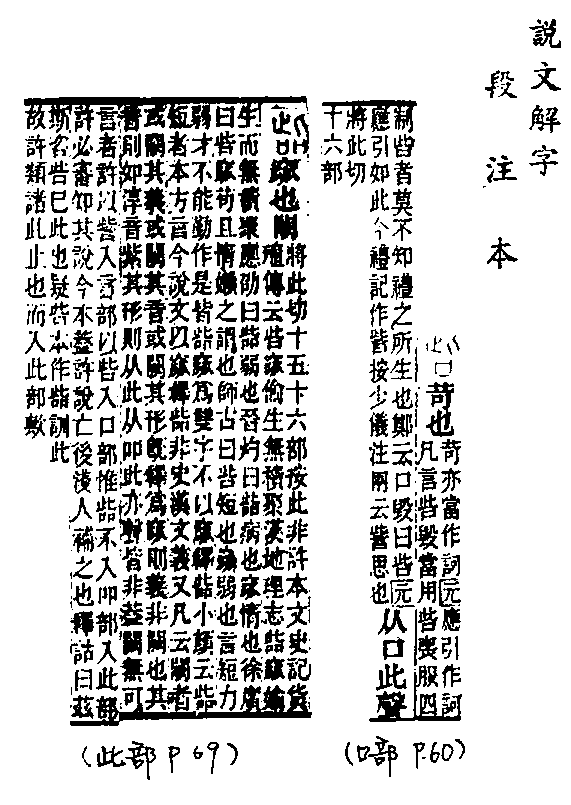 説文解字
段注本
苛也
苛亦當作訶元應引作訶
凡言呰毀當用呰喪服四
制呰者莫不知禮之所生也鄭云口毀曰呰元
應引如此今禮記作訾按少儀注兩云訾思也
从口此聲
將此切
十六部
(口部 P.60)
窳也闕
將此切十五十六部按此非許本文史記貨
殖傳云啙窳偷生無積聚漢地理志啙窳婾
生而無積聚應劭曰啙弱也晉灼曰啙病也窳惰也徐廣
曰啙窳苟且惰嬾之謂也師古曰啙短也窳弱也言短力
弱才不能勤作是皆啙窳爲雙字不以窳釋啙小顔云啙
短者本方言今說文以窳釋啙非史漢文義又凡云闕者
或闕其義或闕其音或闕其形旣釋爲窳則義非闕也其
音則如淳音紫其形則从此从吅此亦聲皆非葢闕無可
言者許以訾入言部以呰入口部惟啙不入吅部入此部
許必審知其說今本葢許說亡後淺人補之也釋詁曰茲
斯咨呰已此也疑呰本作啙訓此
故許類諸此止也而入此部歟
(此部 P 69)